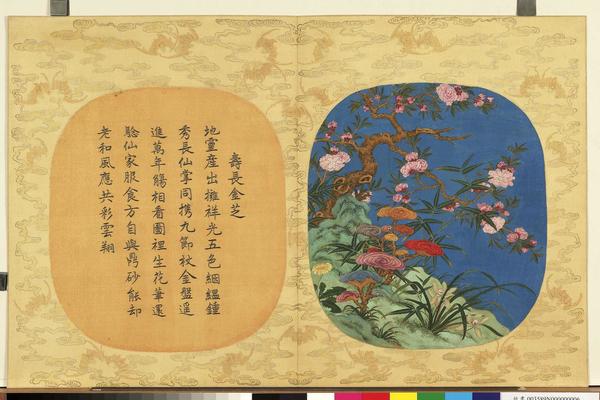 壽長金芝
地靈産出擁祥光五色絪縕鍾
秀長仙掌同携九節杖金盤遥
進萬年觴相看圖裡生花筆還
騐仙家服食方自與鼎砂能却
老和風應共彩雲翔
003589N000000006